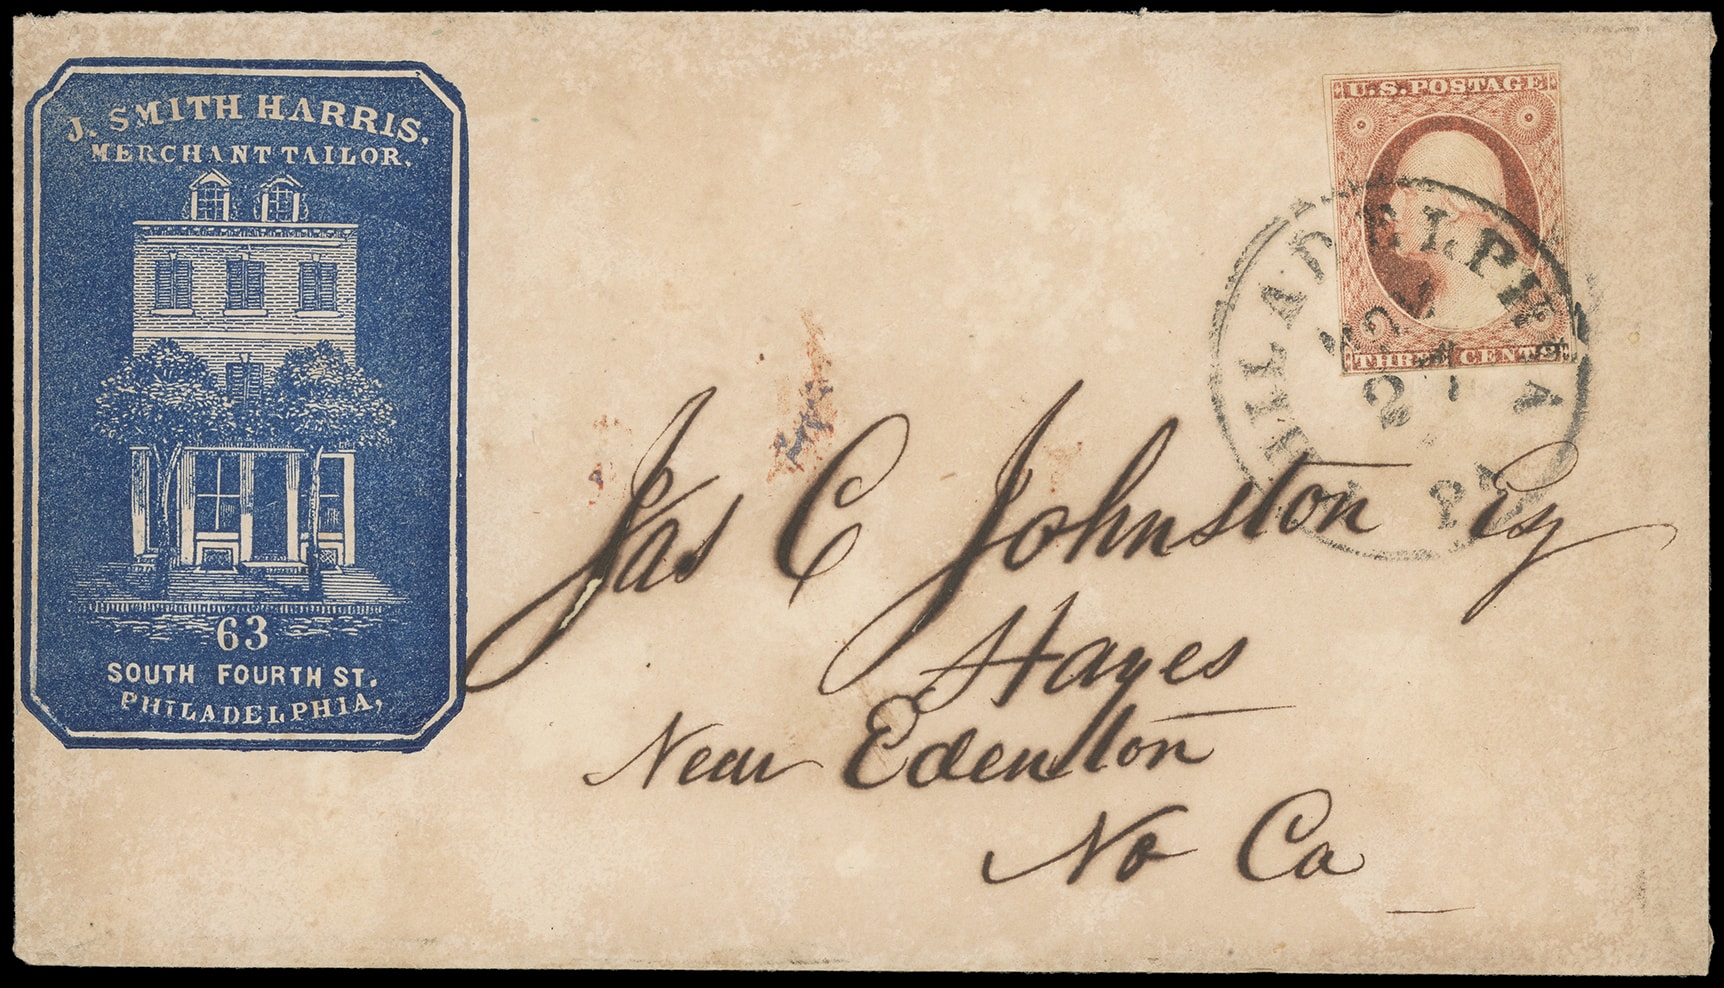 J. SMITH HARRIS,
MERCHANT TAILOR.
63
SOUTH FOURTH ST.
PHILADELPHIA,
U.S. POSTAGE
THREE CENTS
PHILADELPHIA
Jas C Johnston Esq
Hayes
Near Edenton
No Ca